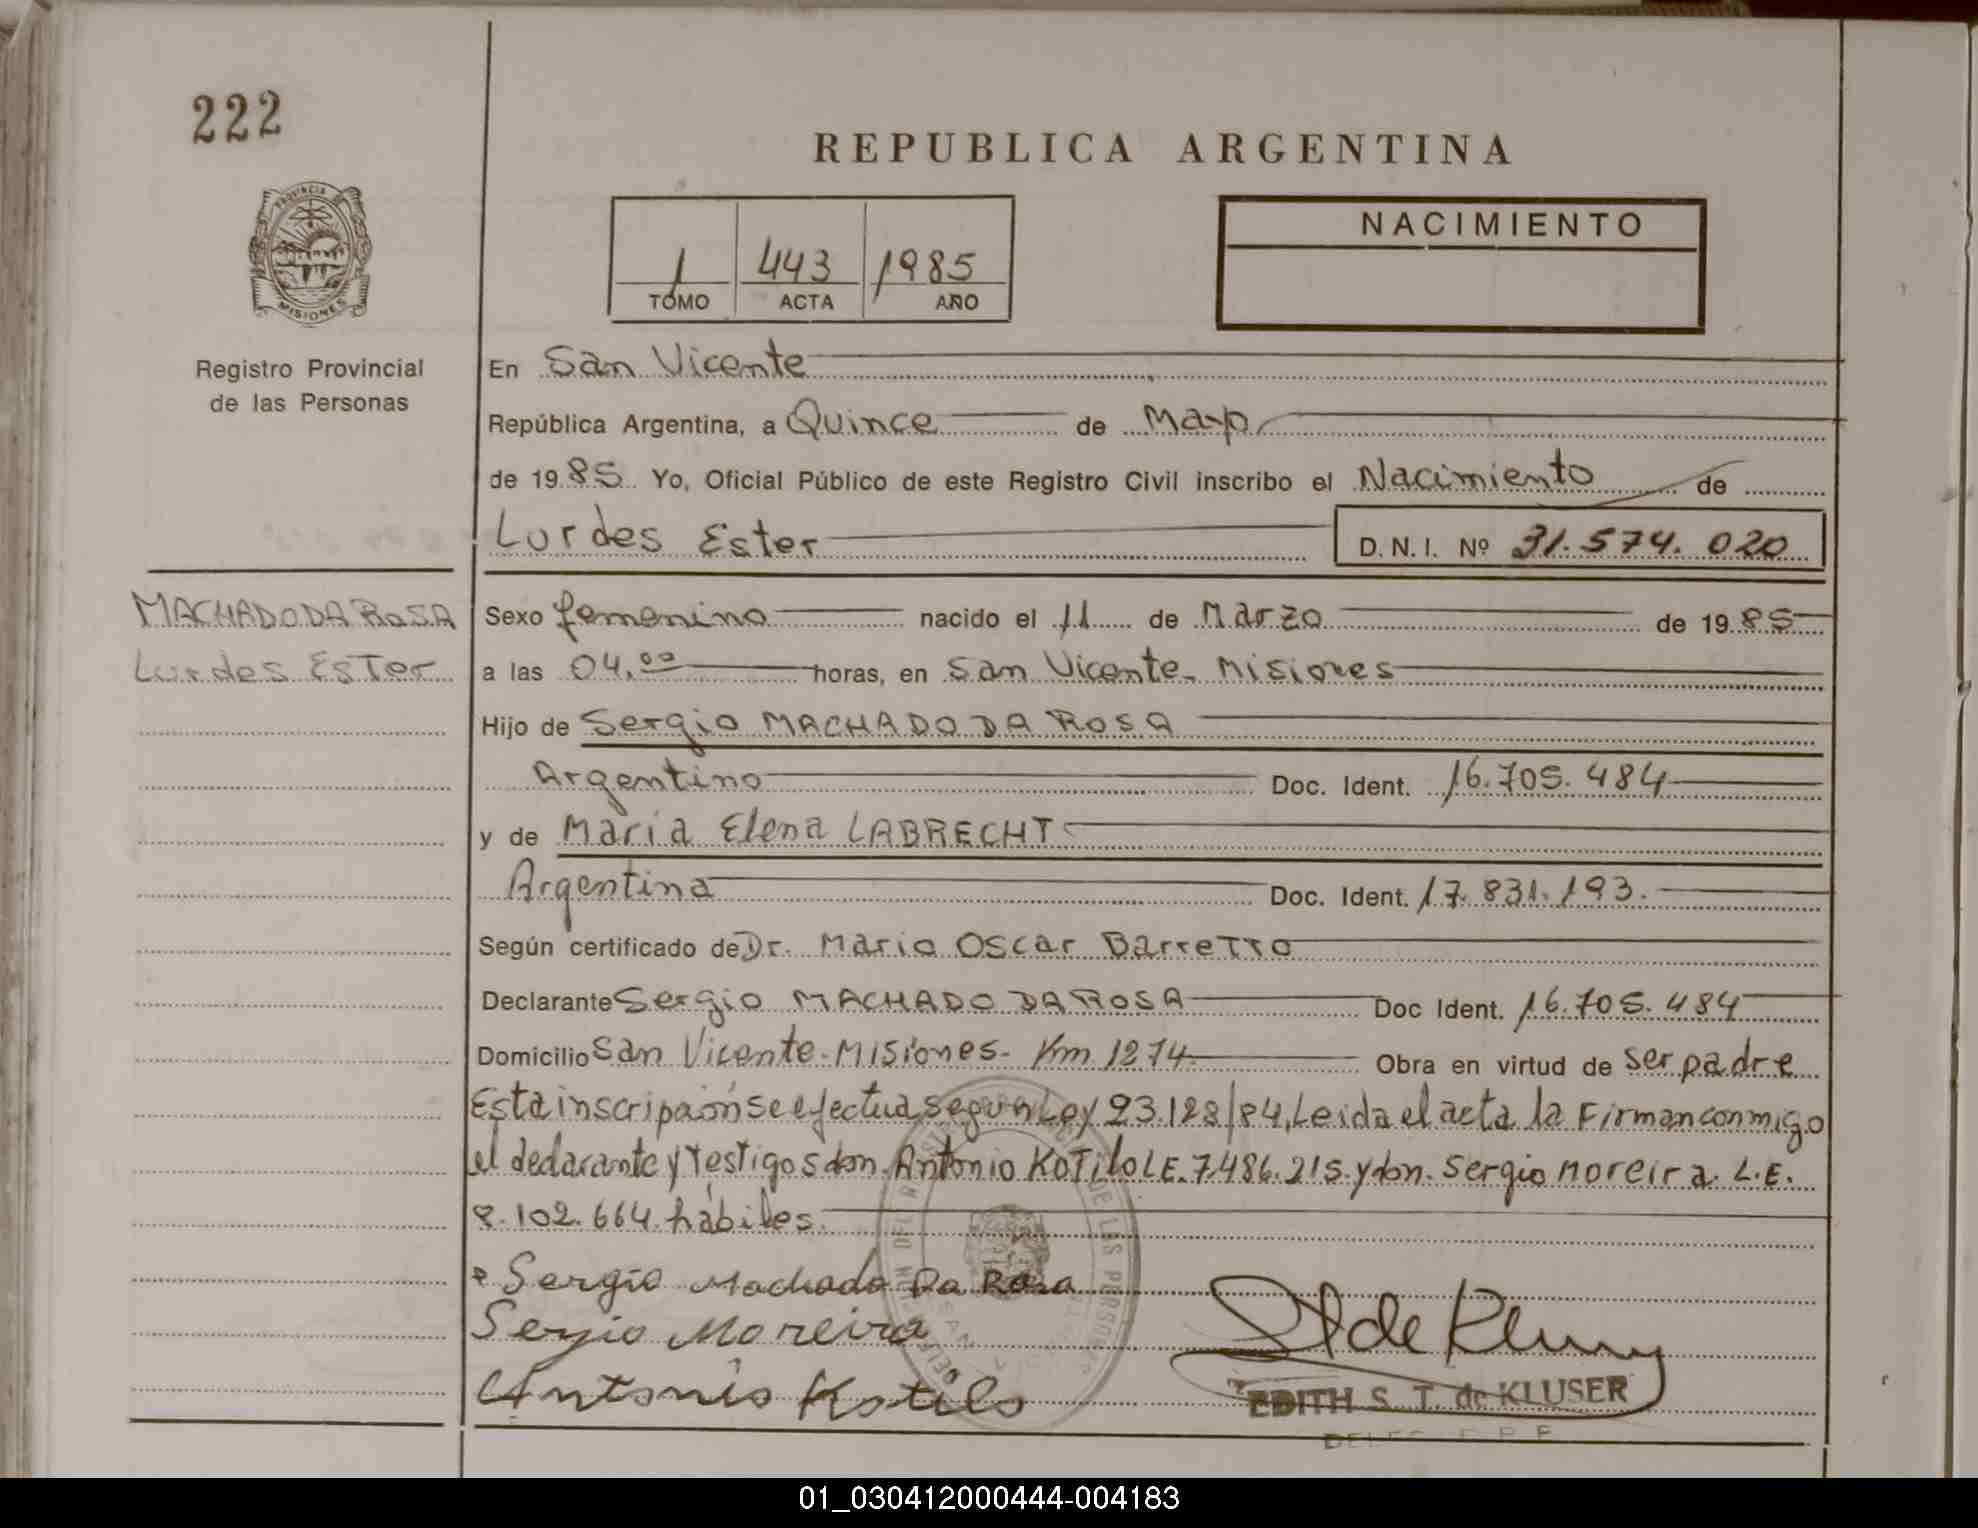 222
REPUBLICA ARGENTINA
PROVINCIA
MISIONES
1 443 1985
TOMO ACTA AÑO
NACIMIENTO
Registro Provincial
de las Personas
En San Vicente
República Argentina, a Quince de Mayo
de 19 85 Yo, Oficial Público de este Registro Civil inscribo el Nacimiento de
Lurdes Ester D.N.I. Nº 31.574.020
MACHADO DA ROSA
Lurdes Ester
Sexo femenino nacido el 11 de Marzo de 19 85
a las 04,00 horas, en San Vicente - Misiones
Hijo de Sergio MACHADO DA ROSA
Argentino Doc. Ident. 16.705.484
y de Maria Elena LABRECHT
Argentina Doc. Ident. 17.831.193.
Según certificado de Dr. Mario Oscar Barretto
Declarante Sergio MACHADO DA ROSA Doc Ident. 16.705.484
Domicilio San Vicente - Misiones - Km 1274 Obra en virtud de ser padre
Esta inscripción se efectua segun Ley 23.128/84, Leida el acta la Firman conmigo
el declarante y Testigos don. Antonio KOTILO L.E. 7.486.215. y don. Sergio Moreira. L.E.
8.102.664. hábiles.
Sergio Machado Da Rosa
Sergio Moreira
Antonio Kotilo
EDITH S. T. de KLUSER
01_030412000444-004183